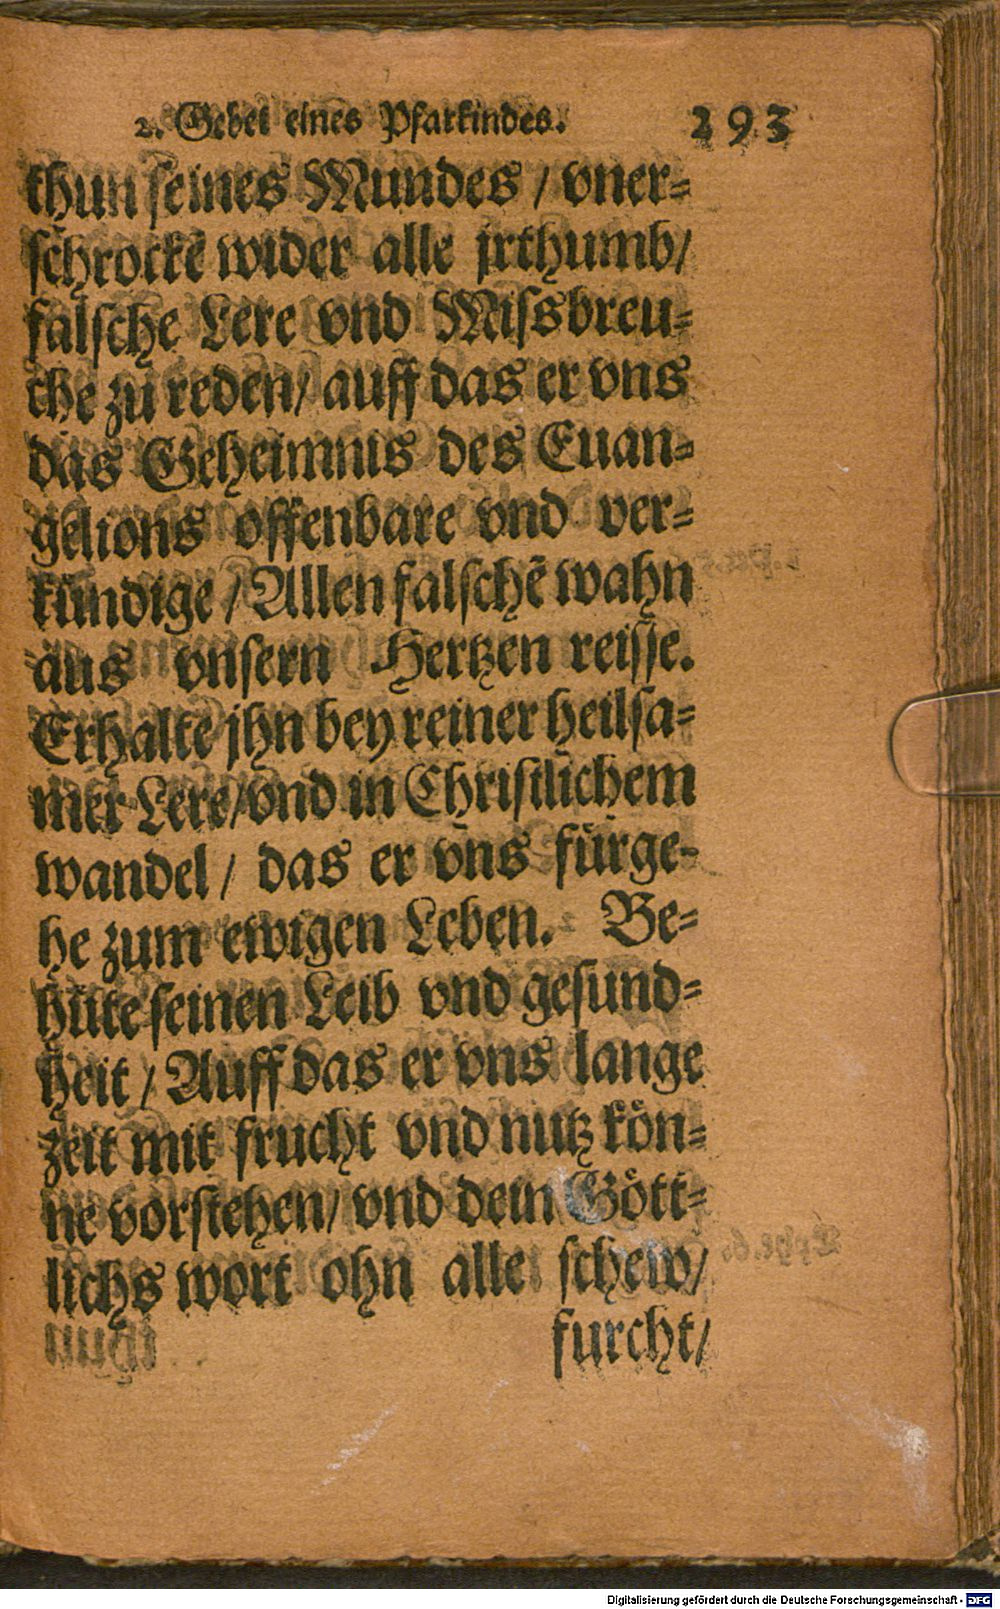 2. Gebet eines Pfarkindes. 293
thun seines Mundes / vner⸗
schrockẽ wider alle jrthumb/
falsche Lere vnd Missbreu⸗
che zu reden/ auff das er vns
das Geheimnis des Euan⸗
gelions offenbare vnd ver⸗
kündige / Allen falschẽ wahn
aus vnsern Hertzen reisse.
Erhalte jhn bey reiner heilsa⸗
mer Lere/vnd in Christlichem
wandel / das er vns fürge⸗
he zum ewigen Leben. Be⸗
hüte seinen Leib vnd gesund⸗
heit / Auff das er vns lange
zeit mit frucht vnd nutz kön⸗
ne vorstehen/ vnd dein Gött⸗
lichs wort ohn alle schew/
furcht/
Digitalisierung gefördert durch die Deutsche Forschungsgemeinschaft - DFG